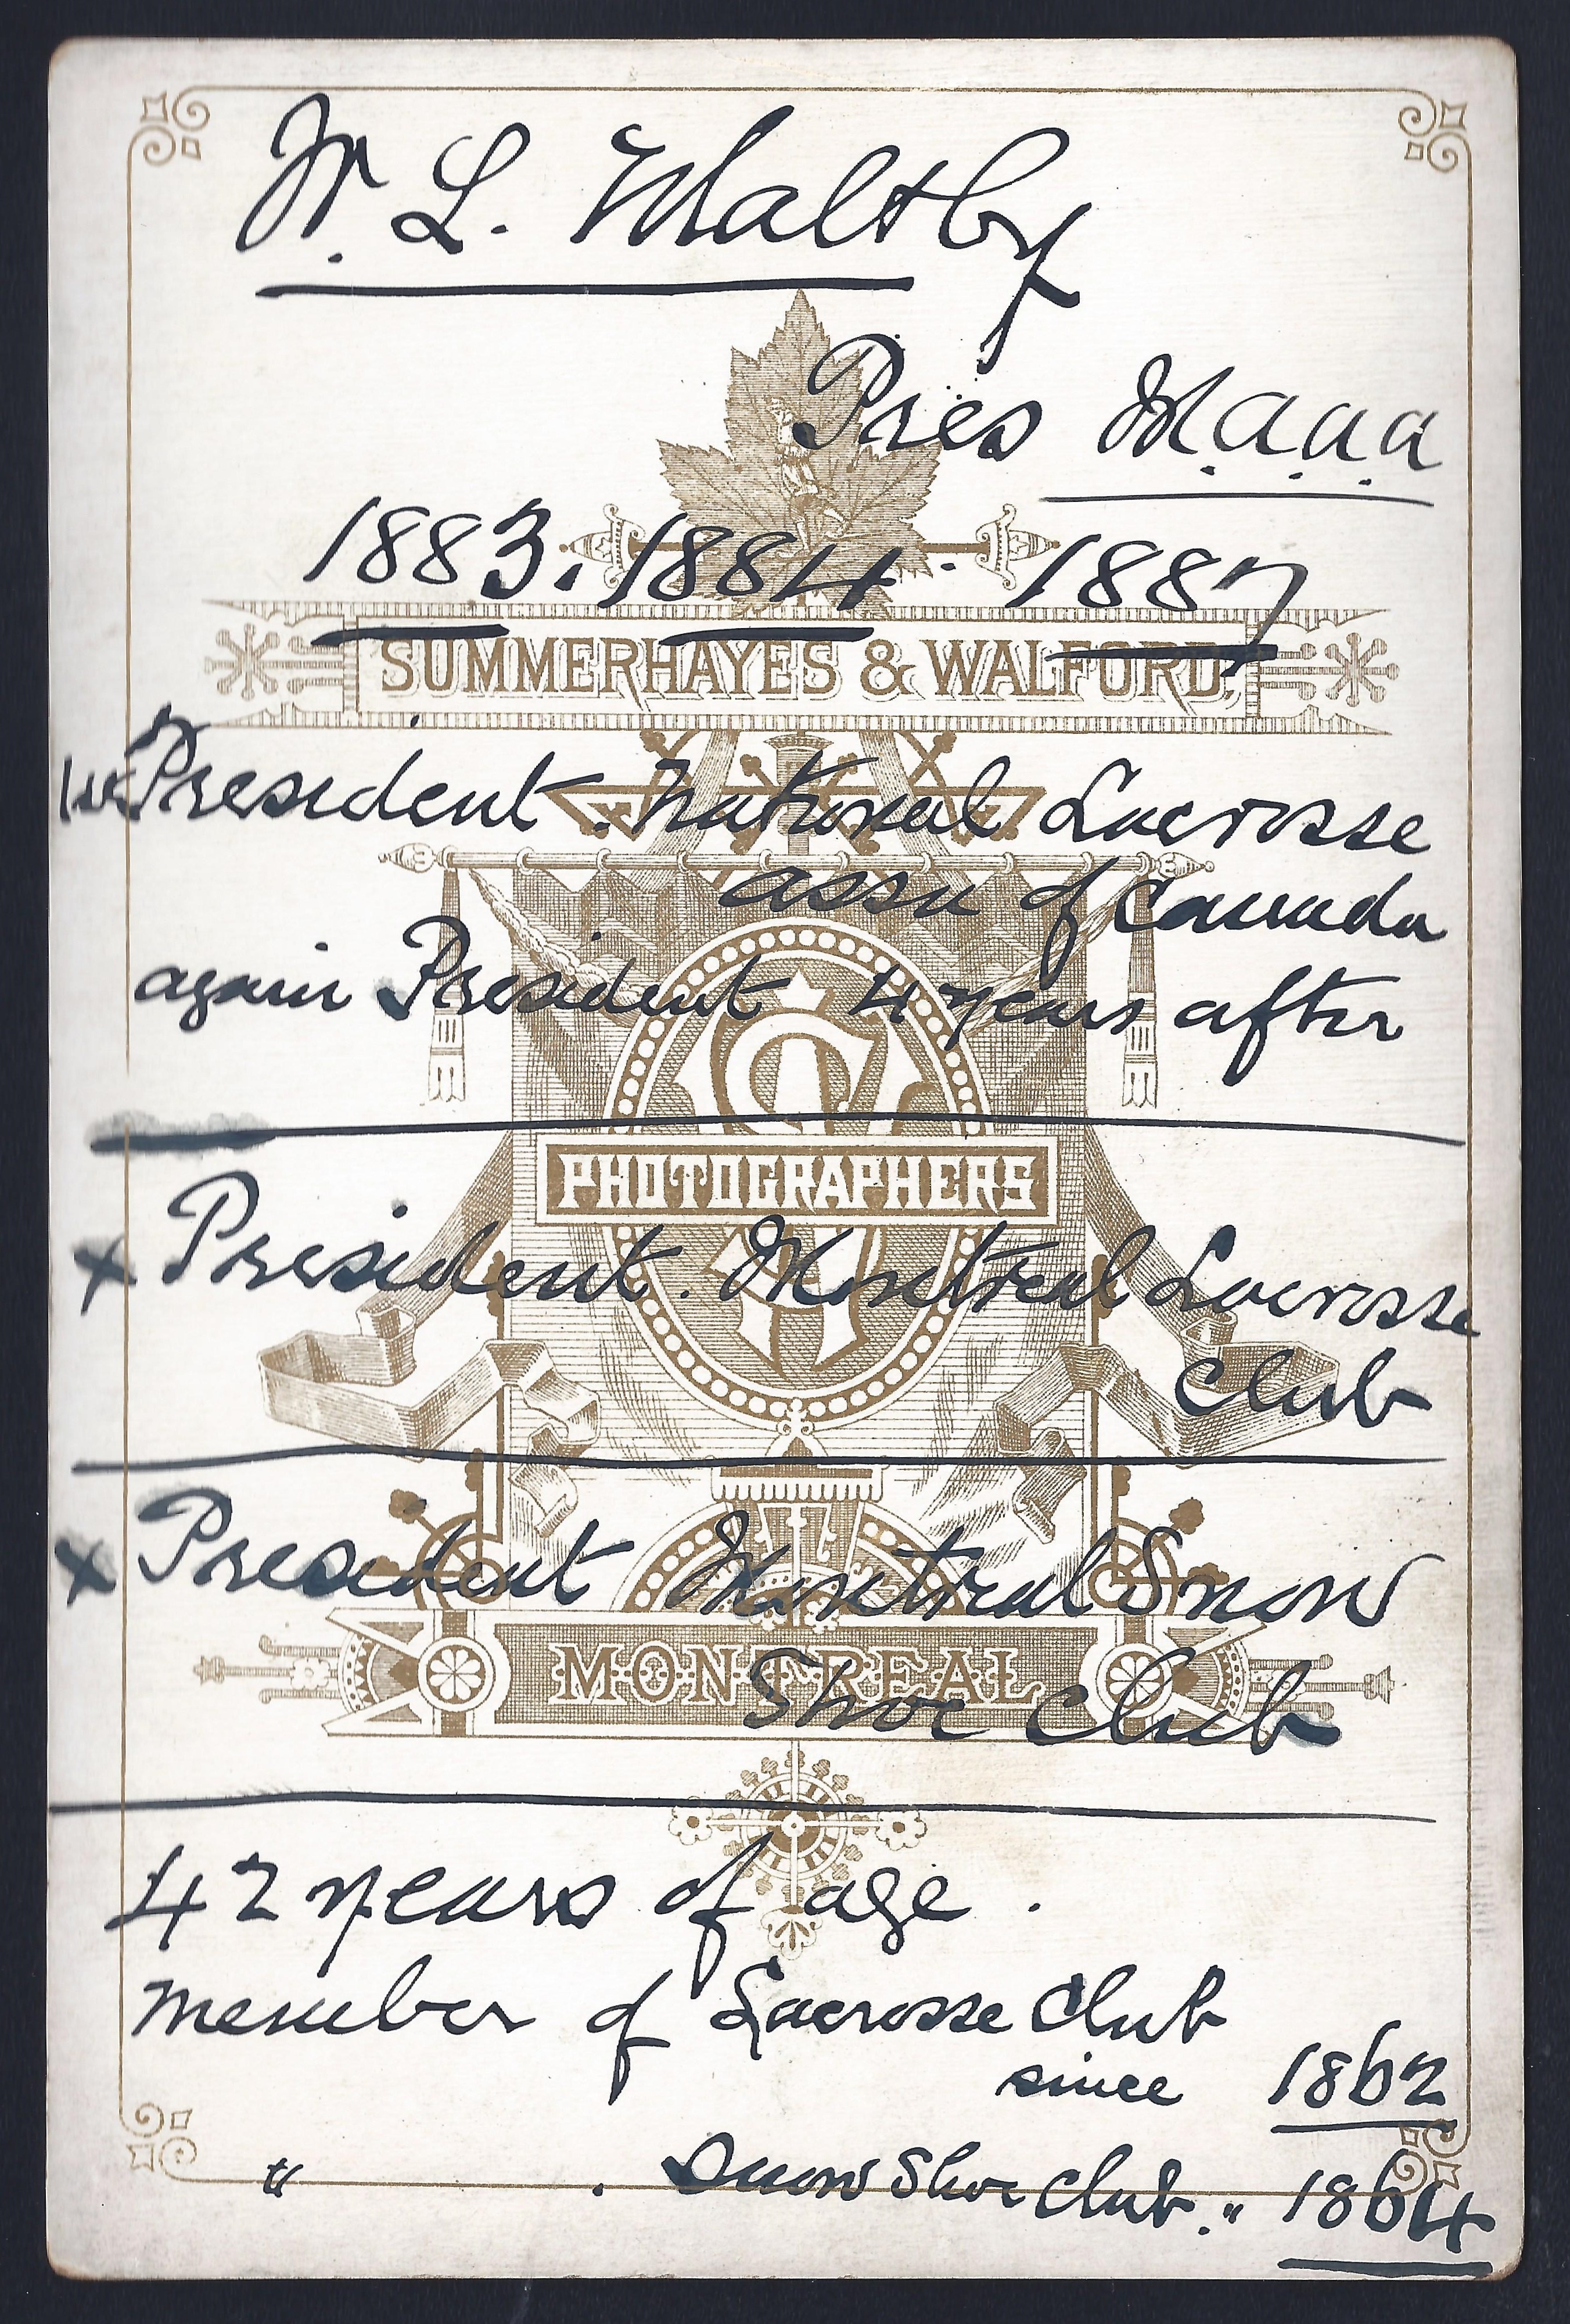 W. L. Maltby
Pres M.a.a.a
1883. 1884. 1887
SUMMERHAYES & WALFORD,
1st President. National Lacrosse
assn of Canada
again President 4 years after
PHOTOGRAPHERS
x President. Montreal Lacrosse
Club
x President Montreal Snow
MONTREAL
Shoe Club
42 years of age.
member of Lacrosse Club
since 1862
" . Snow Shoe Club. " 1864